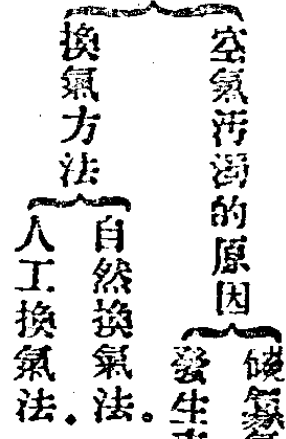 空氣汚濁的原因
發生
換氣方法
自然換氣法。
人工換氣法.